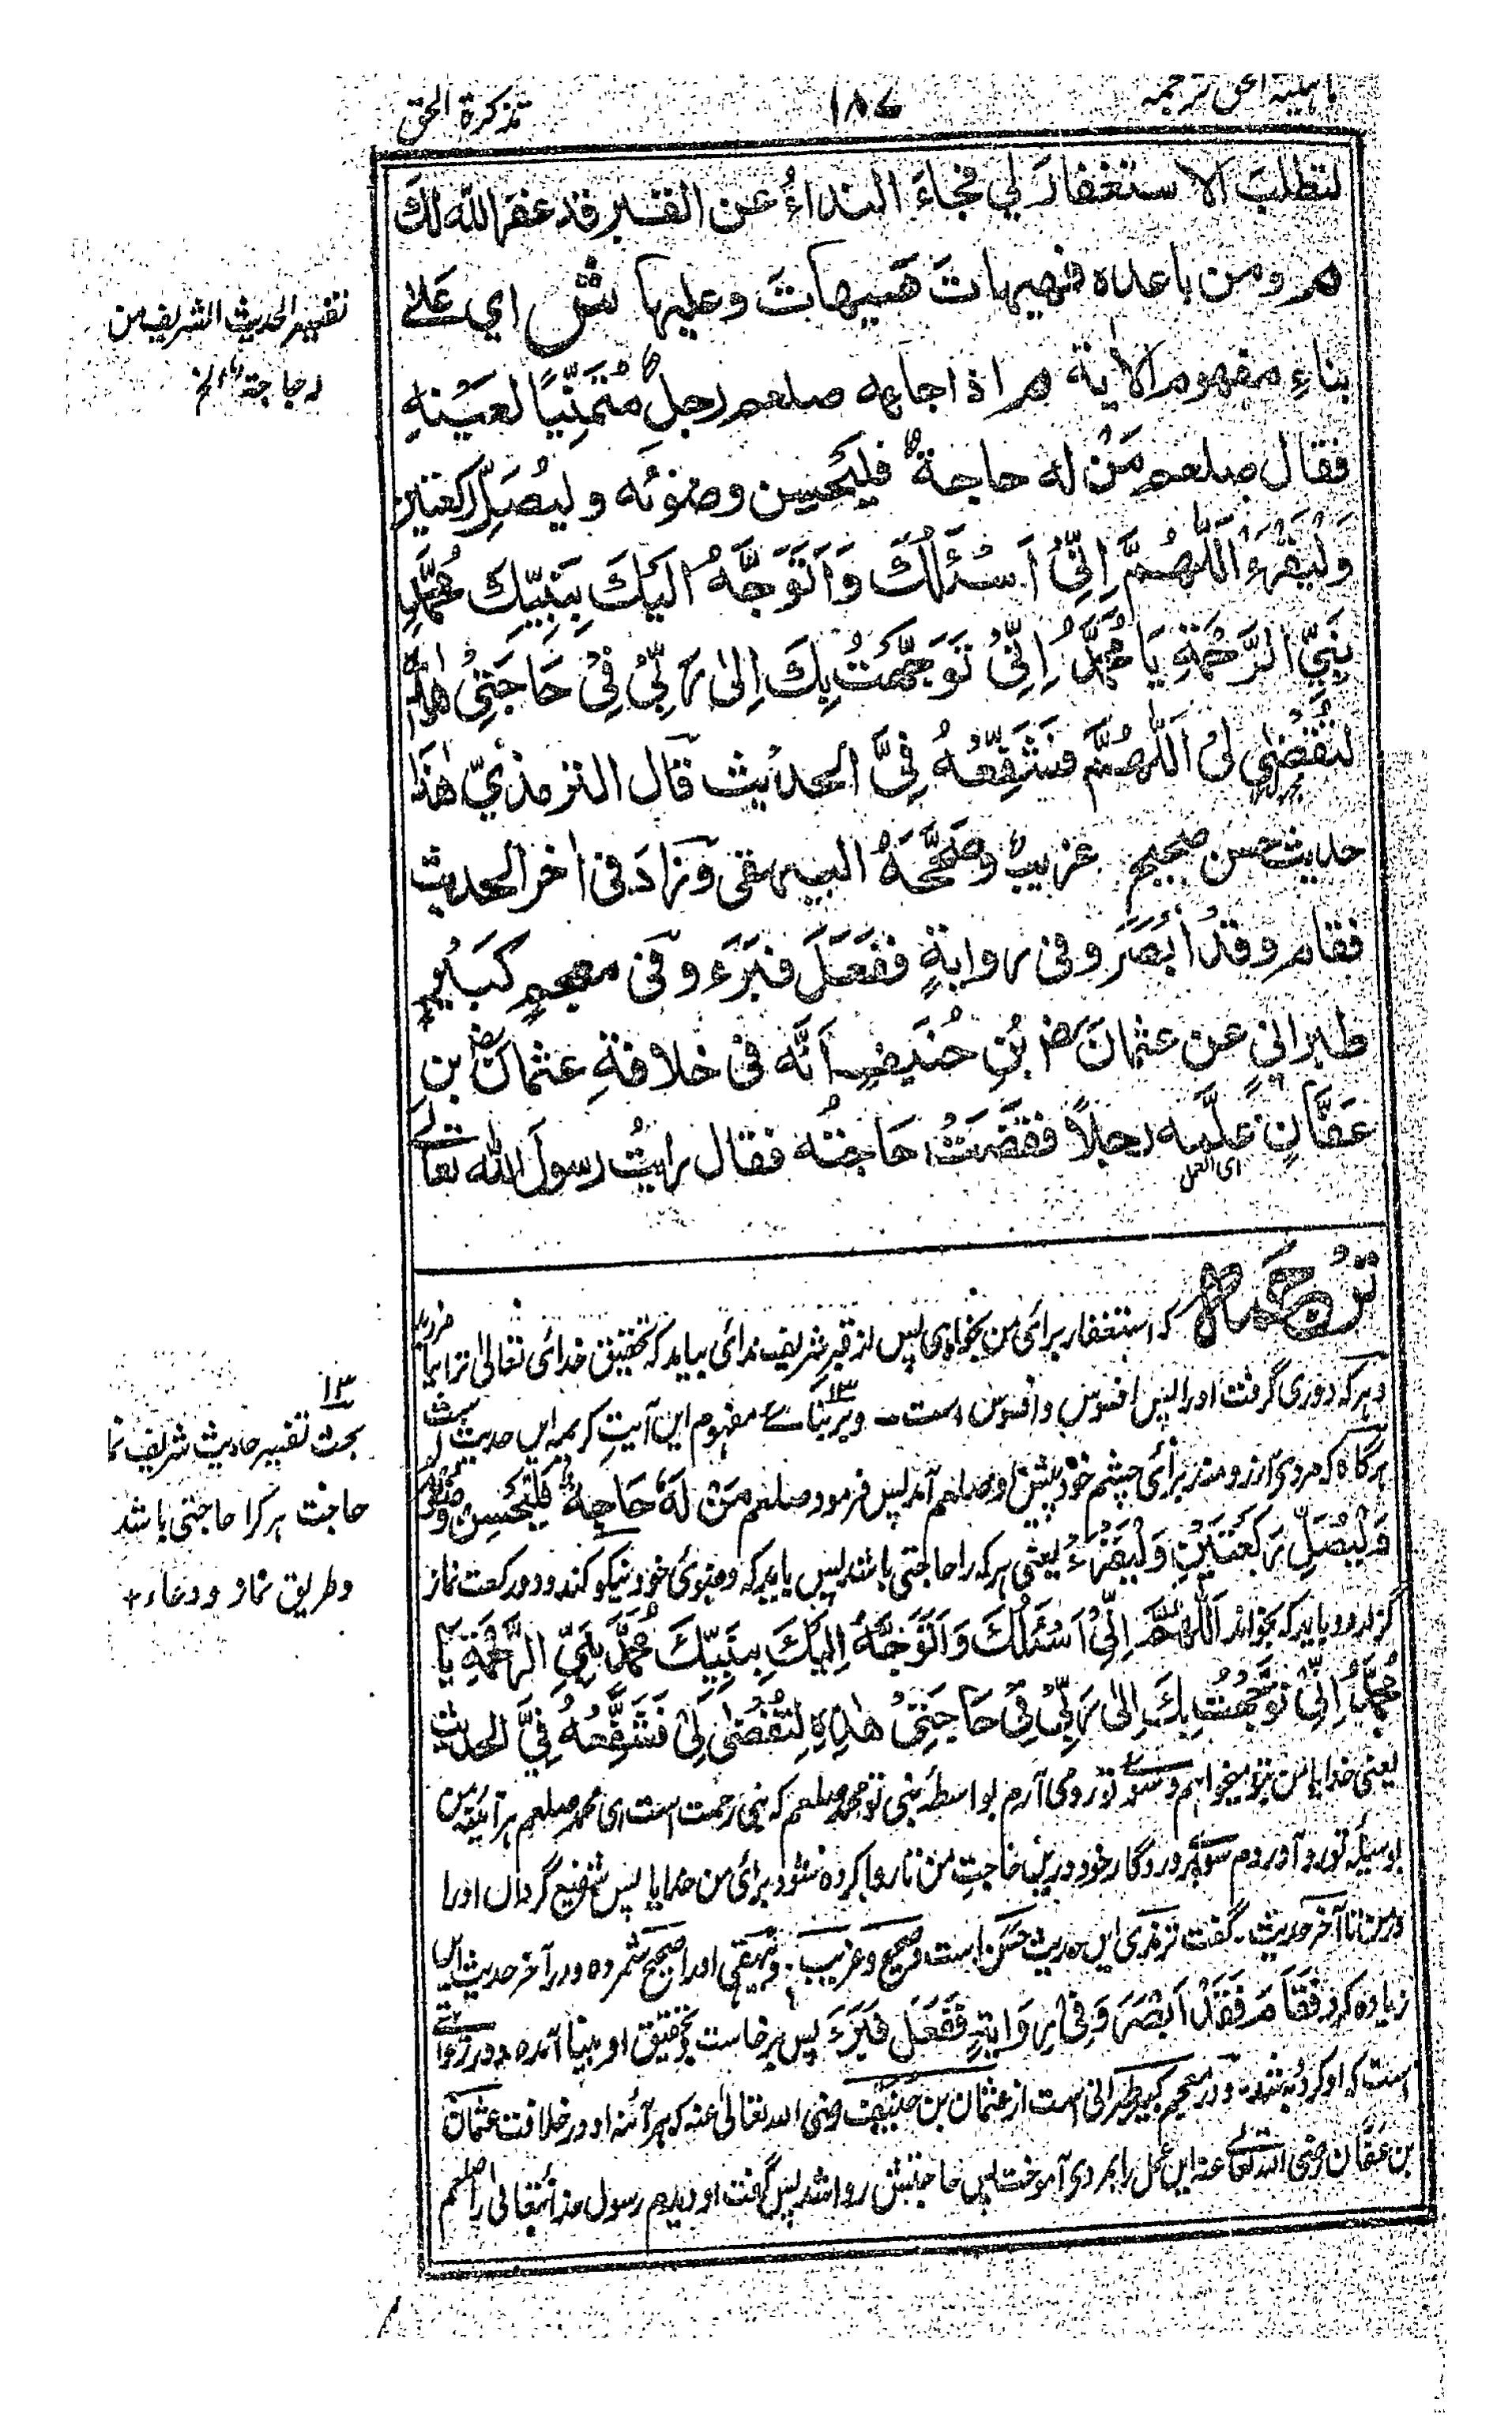 تذكرة الحق
١٨٧
ترجمه
لتطلب الاستغفار لي فجاءَ النداءُ عن القبر قد غفر الله لك
هـ ومن باعداه فهيهات هَيهاتَ وعليها ش اي على
بناءِ مفهوم الاٰية هـ اذا جاءه صلعم رجلٌ مُتمنِّيًا لعَيْنهِ
فقال صلعم مَنْ له حاجةٌ فليُحسِن وضوئه وليُصَلِّ ركعتين
وَلْيَقْرَءْ اَللّٰهُمَّ اِنِّيْ اَسْئَلُكَ وَاَتَوَجَّهُ اِلَيْكَ بِنَبِيِّكَ مُحَمَّدٍ
نَبِيِّ الرَّحْمَةِ يَا مُحَمَّدُ اِنِّيْ تَوَجَّهْتُ بِكَ اِلٰى رَبِّيْ فِيْ حَاجَتِيْ هٰذِهٖ
لِتُقْضٰى لِيْ اَللّٰهُمَّ فَشَفِّعْهُ فِيَّ الحديث قال الترمذيّ هٰذَا
حديث حسن صحيح غريبٌ وصَحَّحَهُ البيهقي وَزادَ في اٰخر الحديث
فقام وقد اَبْصَرَ وفي روايةٍ فَفَعَلَ فبَرَءَ وفي معجم كَبيرِ
طبراني عن عثمانَ رض بْنِ حُنَيفٍ اَنَّه في خلافةِ عثمانَ رض بنِ
عَفَّانٍ عَلَّمَه رجلاً فقُضَتْ حَاجتُه فقال رايتُ رسولَ الله تعالى
اى العمل
تفسير الحديث الشريف من
له حاجة الخ
ترجمه
كه استغفار برائى من بخواهى پس از قبر شريف ندائى بيايد كه تحقيق خدائى تعالىٰ ترا بيامرزيد
و هر كه دورى گرفت اورا پس افسوس و افسوس است ـ و بر بنائے مفهوم اين آيتِ كريمه اين حديث ست
هرگاه كه مردى آرزومند برائى چشم خود پيش او صلعم آمد پس فرمود صلعم مَنْ لَهٗ حَاجةٌ فَلْيُحْسِنْ وُضُوْئَهٗ
وَلْيُصَلِّ رَكْعَتَيْنِ وَلْيَقْرَءْ يعنى هر كه را حاجتى باشد پس بايد كه وضوئى خود نيكو كند و دو ركعت نماز
گزارد و بايد كه بخواند اَللّٰهُمَّ اِنِّيْ اَسْئَلُكَ وَاَتَوَجَّهُ اِلَيْكَ بِنَبِيِّكَ مُحَمَّدٍ نَبِيِّ الرَّحْمَةِ يَا
مُحَمَّدُ اِنِّيْ تَوَجَّهْتُ بِكَ اِلٰى رَبِّيْ فِيْ حَاجَتِيْ هٰذِهٖ لِتُقْضٰى لِيْ فَشَفِّعْهُ فِيَّ الحديث
يعنى خدايا من بتو ميخواهم و سوئے تو رو مى آرم بواسطهٔ نبى تو محمد صلعم كه نبى رحمت است اى محمد صلعم هر آئينه من
بوسيلهٔ تو رو آوردم سوئے پروردگار خود درين حاجتِ من تا روا كرده شود برائى من خدايا پس شفيع گردان اورا
در من تا آخر حديث ـ گفت ترمذى اين حديث حسن است و صحيح و غريب ، و بيهقى اورا صحيح شمرده و در آخر حديث اين
زياده كرد فَقَامَ فَقَدْ اَبْصَرَ وَفِيْ رِوَايَةٍ فَفَعَلَ فَبَرَءَ پس برخاست بتحقيق او بينا آمده و در روايتے
است كه او كرد به شد ـ و در معجم كبير طبرانى است از عثمان بن حنيف رضى الله تعالىٰ عنه كه هر آئنه او در خلافت عثمان
بن عفان رضى الله تعالىٰ عنه اين عمل را بمردى آموخت پس حاجتش روا شد پس گفت او ديدم رسول خدائتعالى را صلعم
١٣
بحث تفسير حديث شريف نماز
حاجت هر كرا حاجتى باشد
و طريق نماز و دعاء +